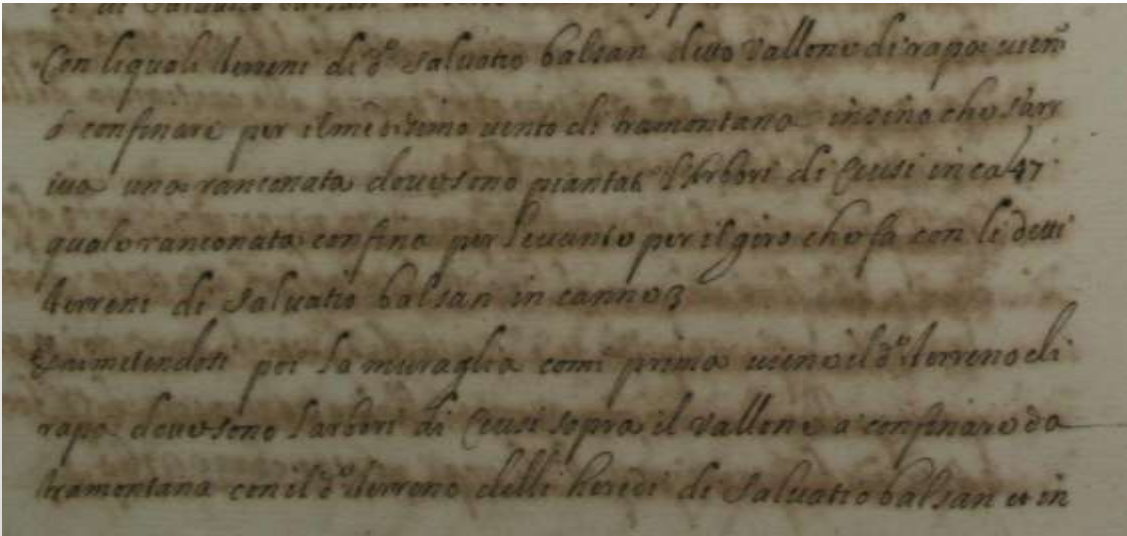 Con liquali terreni di d.º Saluatio balsan detto Vallone di rapo uiene
à confinare per il medesimo uento di tramontana insino che s'arr
iua una ranconata doue sono piantati l'Arbori di Ceusi in ca 47
quale ranconata confina per leuante per il giro che fa con li detti
terreni di Saluatio balsan in canne 3
poi la muraglia come prima uiene il d.º terreno di
rapo doue sono l'arbori di Ceusi sopra il Vallone a confinare da
tramontana con il d.º terreno delli heredi di Saluatio balsan et in